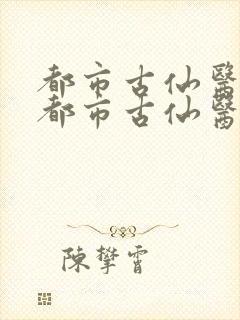 都市古仙醫
都市古仙醫
陳攀霄